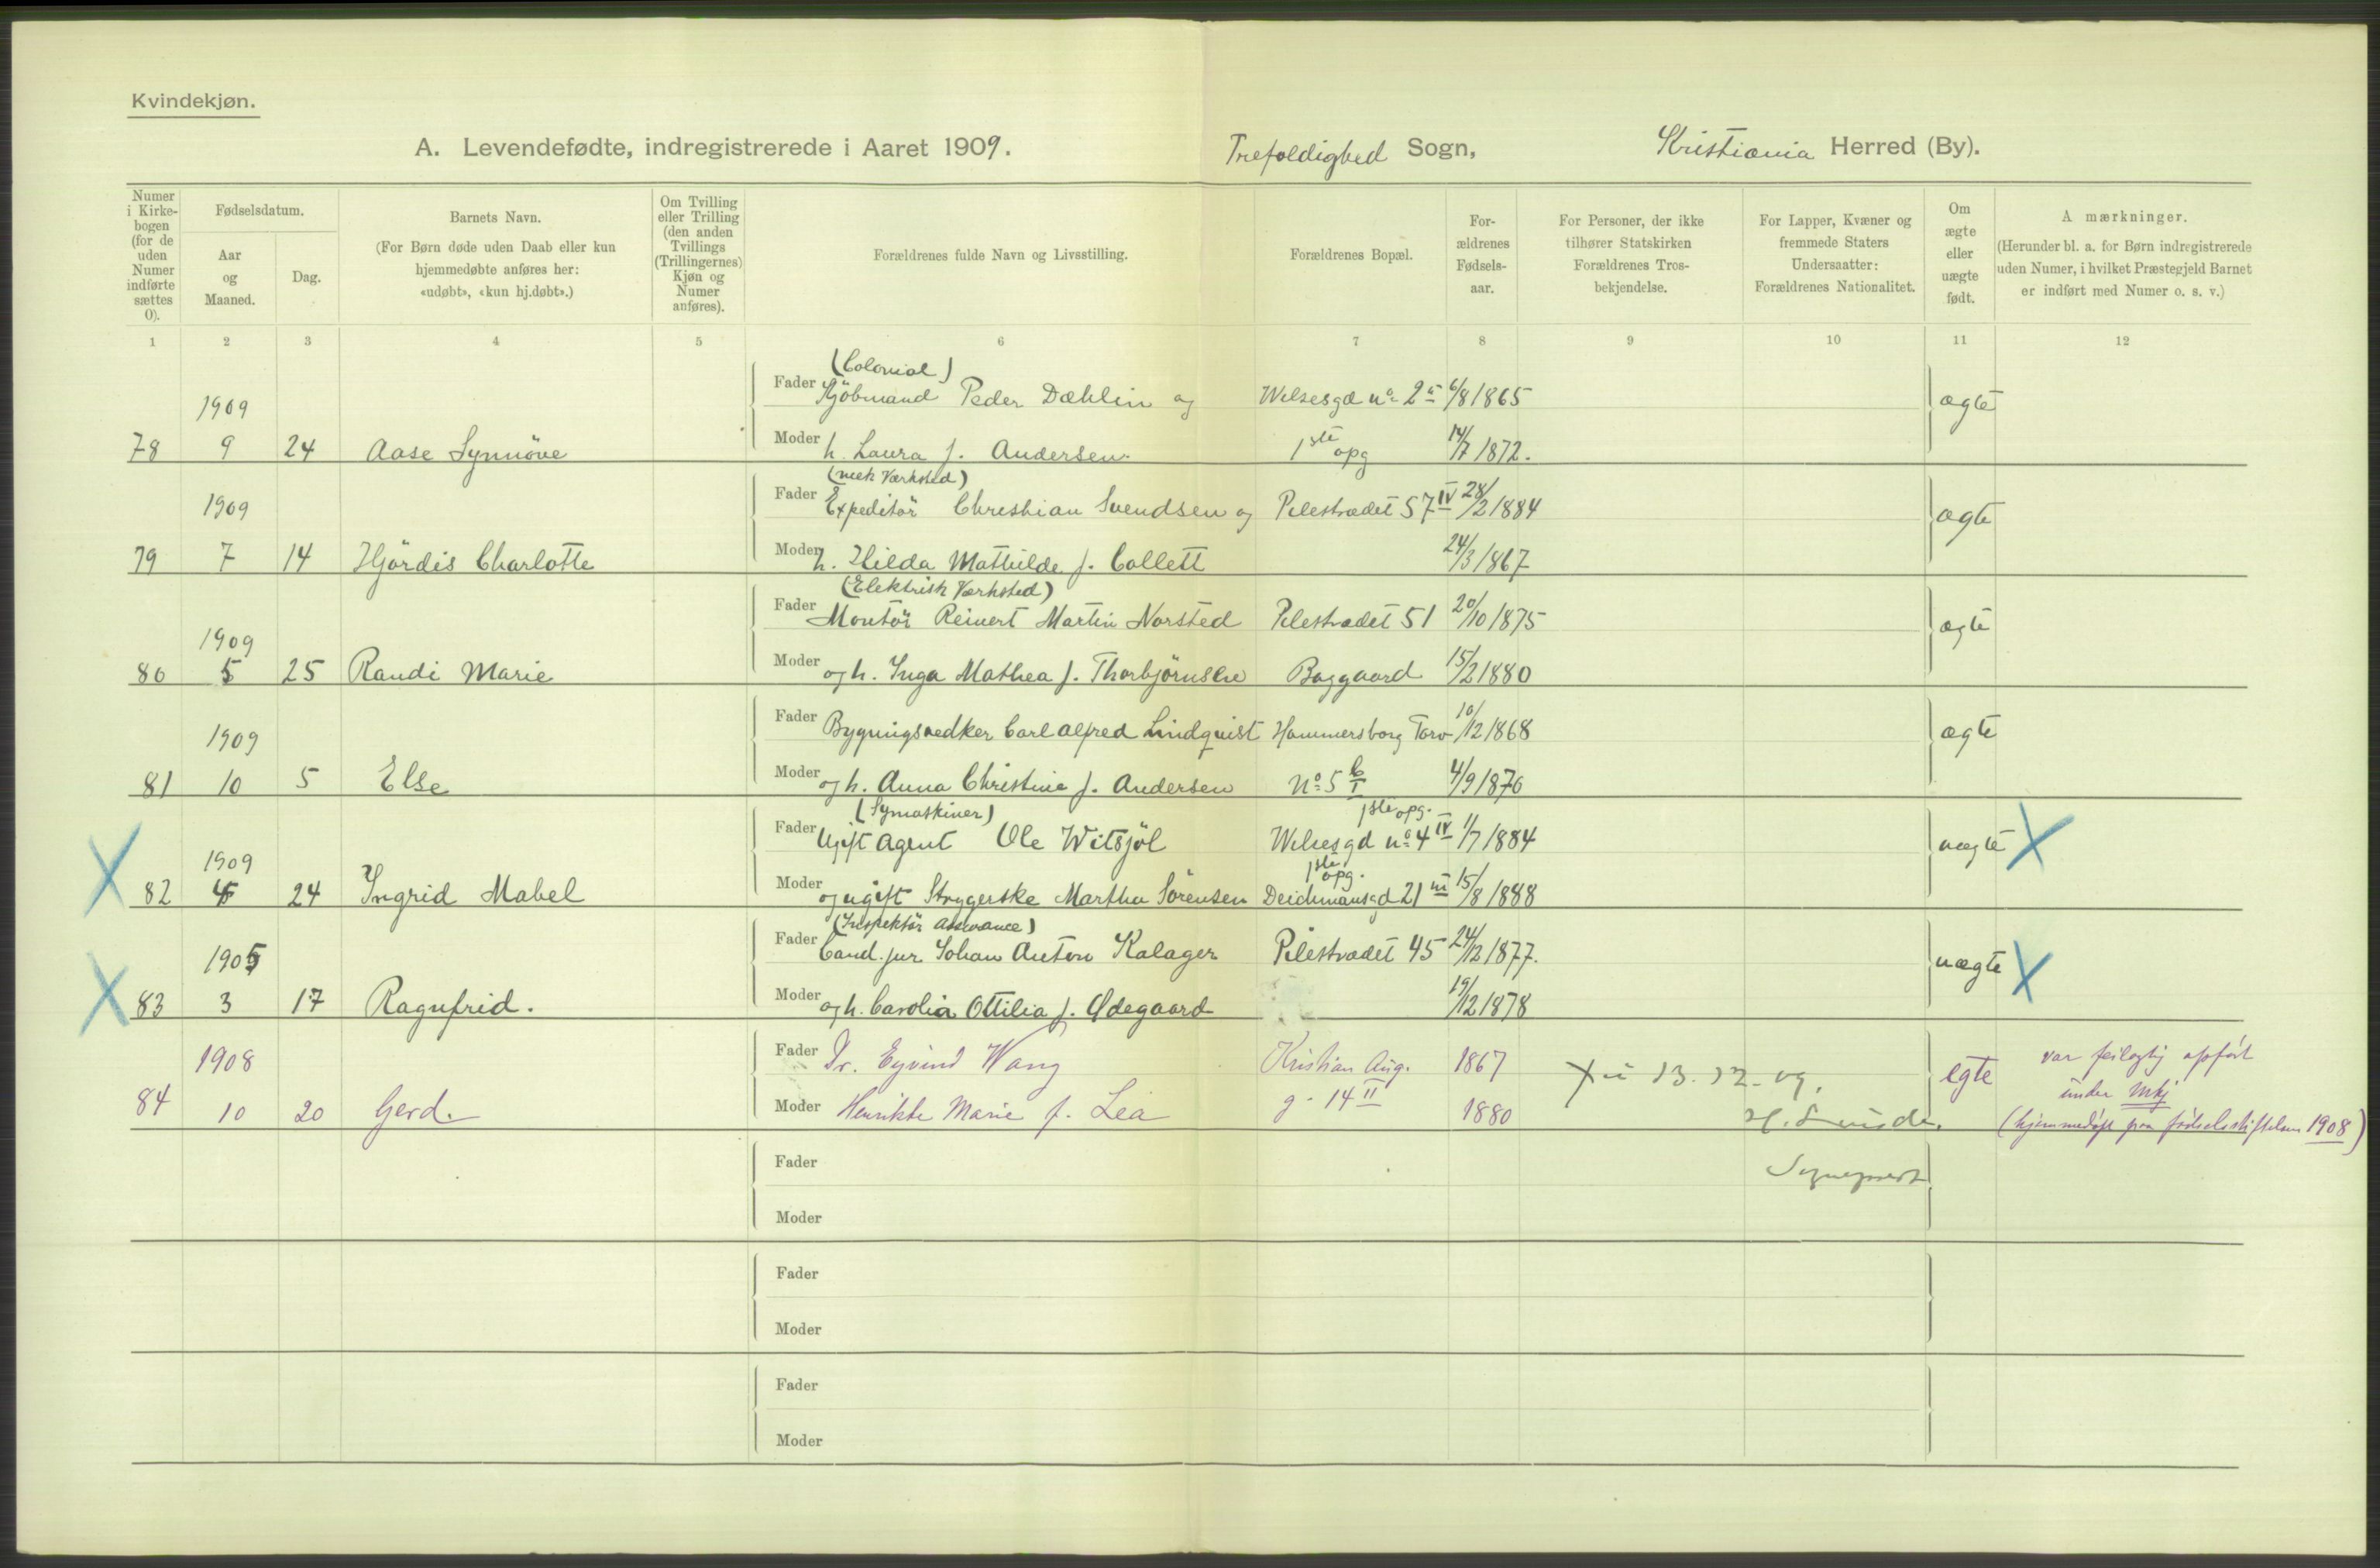 Kvindekjøn.
A. Levendefødte, indregistrerede i Aaret 1909.
Trefoldighed Sogn, Kristiania Herred (By).
Numer i Kirkebogen (for de uden Numer indførte sættes 0).
Fødselsdatum.
Aar og Maaned.
Dag.
Barnets Navn.
(For Børn døde uden Daab eller kun hjemmedøbte anføres her: «udøbt», «kun hj.døbt».)
Om Tvilling eller Trilling (den anden Tvillings (Trillingernes) Kjøn og Numer anføres).
Forældrenes fulde Navn og Livsstilling.
Forældrenes Bopæl.
Forældrenes Fødselsaar.
For Personer, der ikke tilhører Statskirken Forældrenes Trosbekjendelse.
For Lapper, Kvæner og fremmede Staters Undersaatter: Forældrenes Nationalitet.
Om ægte eller uægte født.
Anmærkninger.
(Herunder bl. a. for Børn indregistrerede uden Numer, i hvilket Præstegjeld Barnet er indført med Numer o. s. v.)
1 2 3 4 5 6 7 8 9 10 11 12
(Colonial)
1909 Fader Kjöbmand Peder Dæhlin og Welsesgd no 2 6/8 1865 ægte
78 9 24 Aase Synnöve Moder h. Laura f. Andersen. 1ste opg 14/7 1872.
(mek Værksted)
1909 Fader Expeditör Christian Svendsen og Pilestrædet 57 IV 28/2 1884 ægte
79 7 14 Hjördis Charlotte Moder h. Hilda Mathilde f. Collett 24/3 1867
(Elektrisk Værksted)
1909 Fader Montör Reinert Martin Norsted Pilestrædet 51 20/10 1875 ægte
80 5 25 Randi Marie Moder og h. Inga Mathea f. Thorbjörnsen Baggaard 15/2 1880
1909 Fader Bygningssnedker Carl Alfred Lindquist Hammersborg Torv 10/12 1868 ægte
81 10 5 Else Moder og h. Anna Christine f. Andersen No 5 b I 4/9 1870
(Symaskiner) 1ste opg.
1909 Fader Ugift Agent Ole Witsjöl Welsesgd no 4 IV 1/7 1884 uægte X
1ste opg.
X 82 24 Ingrid Mabel Moder og ugift Strygerske Martha Sörensen Deichmansgd 21 III 15/8 1888
(Inspektör Assurance)
1905 Fader Cand. jur. Johan Anton Kalager Pilestrædet 45 24/12 1877. uægte X
X 83 3 17 Ragnfrid. Moder og h. Carolia Ottilia f. Ødegaard 19/12 1878
1908 Fader Dr. Eyvind Wang Kristian Aug. 1867 13.12.09. egte var feilagtig opfört under Mkj
84 10 20 Gerd. Moder Henrikke Marie f. Lea g. 14 II 1880 (hjemmedøpt paa födselsstiftelsen 1908)
Sogneprest
Fader
Moder
Fader
Moder
Fader
Moder